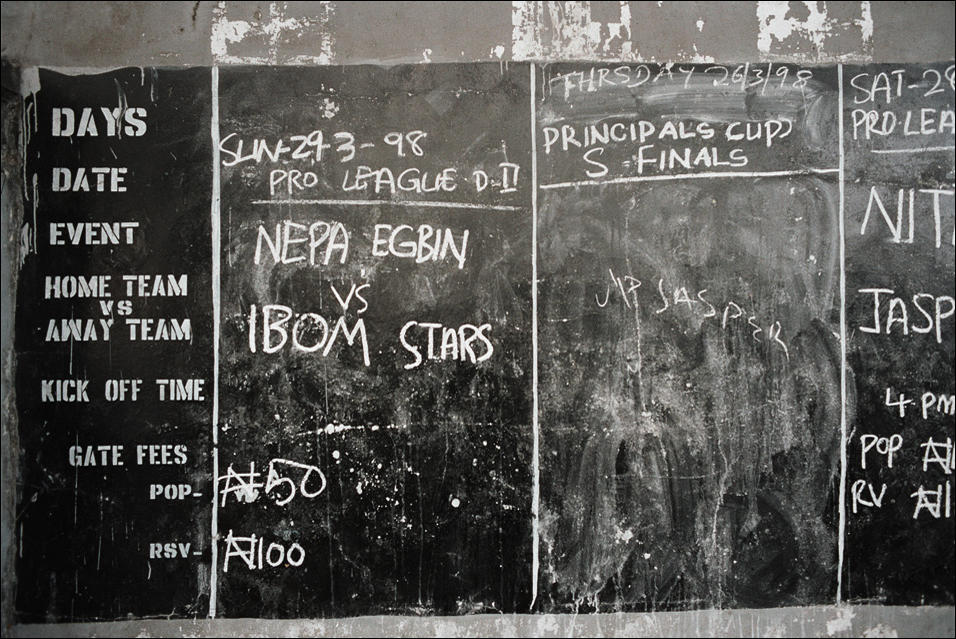 DAYS
DATE
EVENT
HOME TEAM
VS
AWAY TEAM
KICK OFF TIME
GATE FEES
POP-
RSV-
SUN-29-3-98
PRO LEAGUE D.II
NEPA EGBIN
VS
IBOM STARS
₦50
₦100
THRSDAY 26/3/98
PRINCIPALS CUP
S-FINALS
JASPER
SAT-28
PRO LEA
NIT
JASP
4 PM
POP ₦
RV ₦1